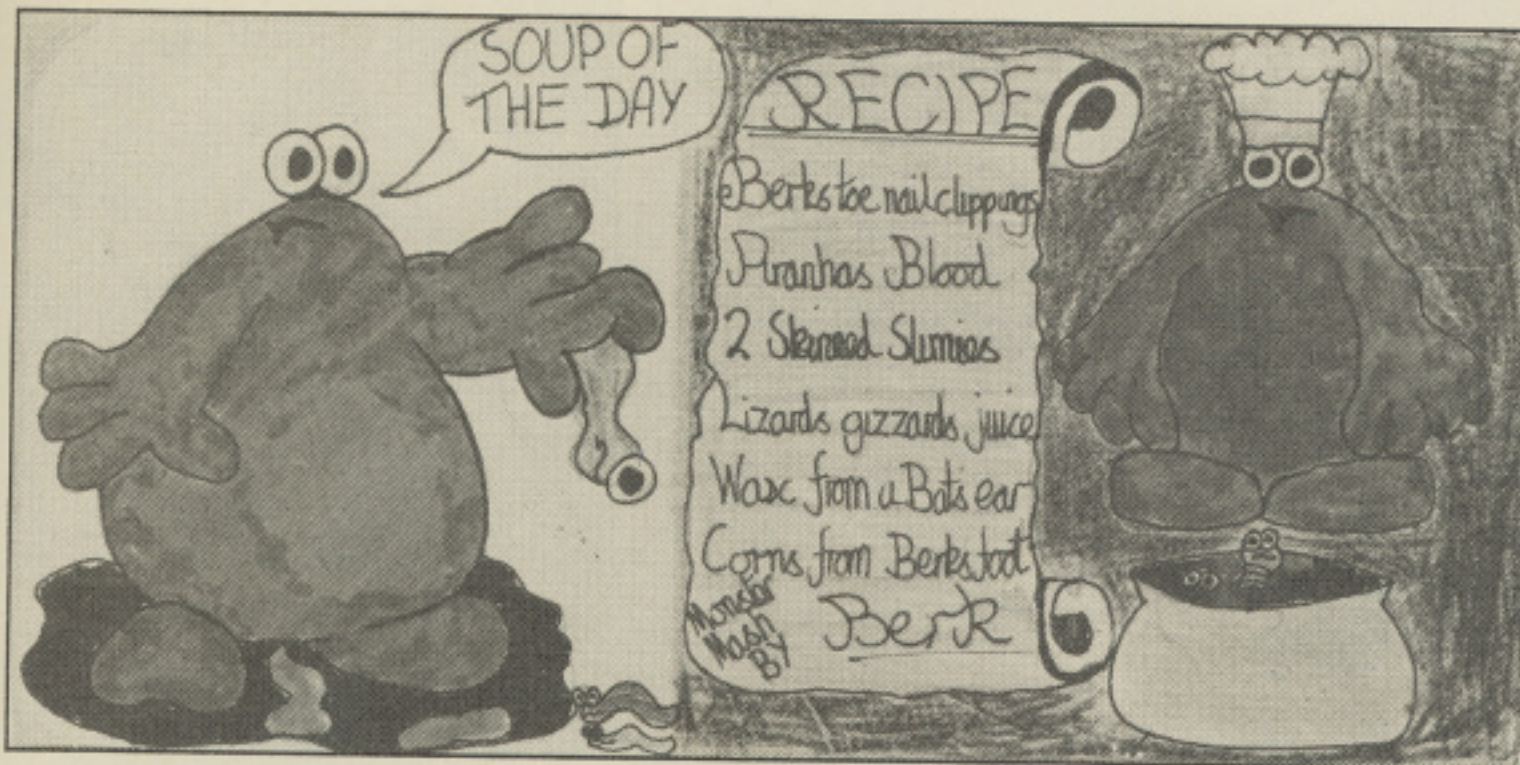 SOUP OF
THE DAY
RECIPE
Berks toe nail clippings
Piranhas Blood
2 Skinned Slimies
Lizards gizzards juice
Wax from a Bats ear
Corns from Berks foot
Monster
Mash
BY
Berk